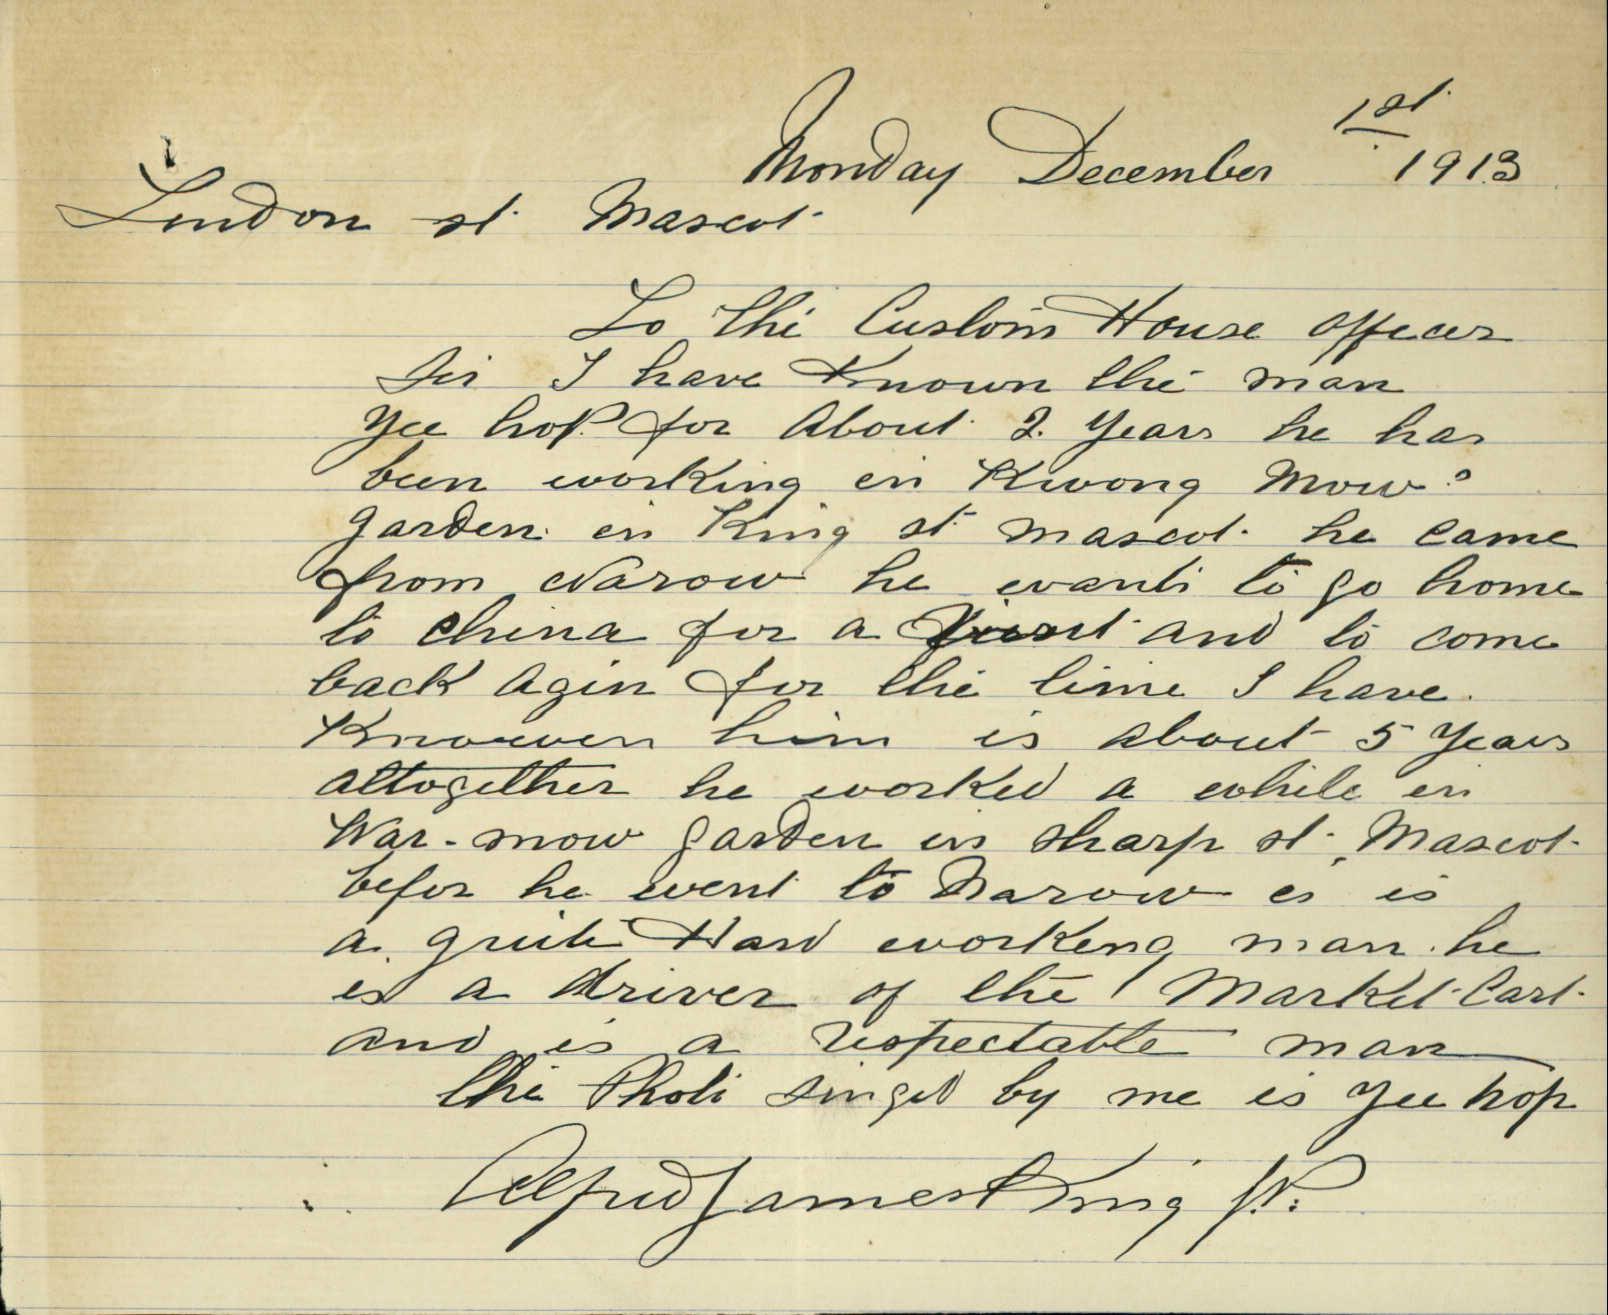 Monday December 1st 1913
London st Mascot
To the Custom House officer
Sir I have Known the man
Yee hop for About 2 Years he has
been working in Kwong Mow
garden in King st mascot he came
from Narow he wants to go home
to China for a Visit and to come
back Agin for the time I have
Knowen him is about 5 Years
altogether he worked a while in
War-mow garden in sharp st Mascot
befor he went to Narow is
a quite Hard working man he
is a driver of the Market Cart
and is a respectable man
the Photi singed by me is Yee hop
Alfred James King J.P.